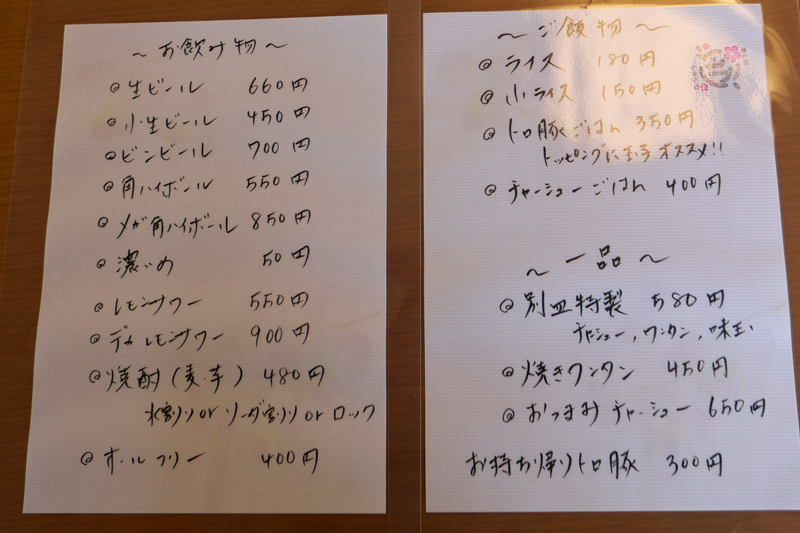 ～お飲み物～
◎生ビール 660円
◎小生ビール 450円
◎ビンビール 700円
◎角ハイボール 550円
◎メガ角ハイボール 850円
◎濃いめ 50円
◎レモンサワー 550円
◎デカレモンサワー 900円
◎焼酎（麦・芋） 480円
水割りorソーダ割りorロック
◎オールフリー 400円
～ご飯物～
◎ライス 180円
◎小ライス 150円
◎トロ豚ごはん 350円
トッピングに玉子オススメ!!
◎チャーシューごはん 400円
～一品～
◎別皿特製 580円
チャーシュー，ワンタン，味玉
◎焼きワンタン 450円
◎おつまみチャーシュー 650円
お持ち帰りトロ豚 300円